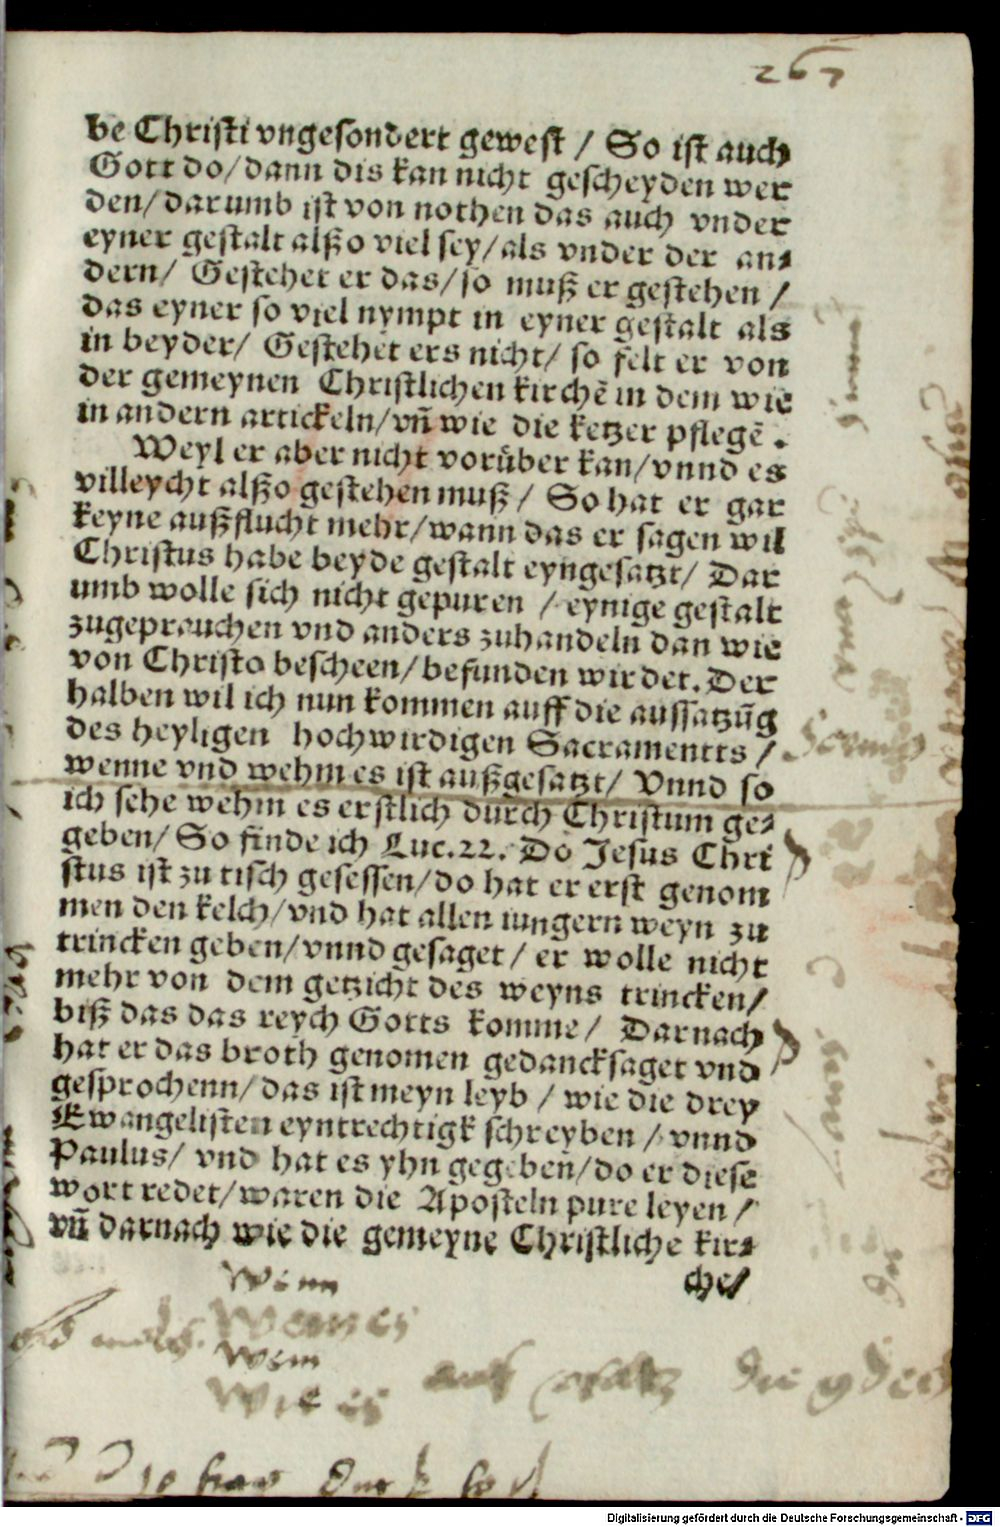 267
be Christi vngesondert gewest / So ist auch
Gott do/dann dis kan nicht gescheyden wer
den/darumb ist von nothen das auch vnder
eyner gestalt alßo viel sey/als vnder der an⸗
dern/ Gestehet er das/so muß er gestehen /
das eyner so viel nympt in eyner gestalt als
in beyder/ Gestehet ers nicht/ so felt er von
der gemeynen Christlichen kirchē in dem wie
in andern artickeln/vn̄ wie die ketzer pflegē .
Weyl er aber nicht vorüber kan/vnnd es
villeycht alßo gestehen muß/ So hat er gar
keyne außflucht mehr/wann das er sagen wil
Christus habe beyde gestalt eyngesatzt/ Dar
umb wolle sich nicht gepuren /eynige gestalt
zugeprauchen vnd anders zuhandeln dan wie
von Christo bescheen/befunden wirdet. Der
halben wil ich nun kommen auff die aussatzūg
des heyligen hochwirdigen Sacramentts /
wenne vnd wehm es ist außgesatzt/ Vnnd so
ich sehe wehm es erstlich durch Christum ge⸗
geben/ So finde ich Luc.22. Do Jesus Chri
stus ist zu tisch gesessen/do hat er erst genom
men den kelch/vnd hat allen iungern weyn zu
trincken geben/vnnd gesaget/ er wolle nicht
mehr von dem getzicht des weyns trincken/
biß das das reych Gotts komme/ Darnach
hat er das broth genomen gedancksaget vnd
gesprochenn/das ist meyn leyb / wie die drey
Ewangelisten eyntrechtigk schreyben / vnnd
Paulus/ vnd hat es yhn gegeben/do er diese
wort redet/waren die Aposteln pure leyen /
vn̄ darnach wie die gemeyne Christliche kir⸗
che/
Wenn
Wem
Digitalisierung gefördert durch die Deutsche Forschungsgemeinschaft - DFG